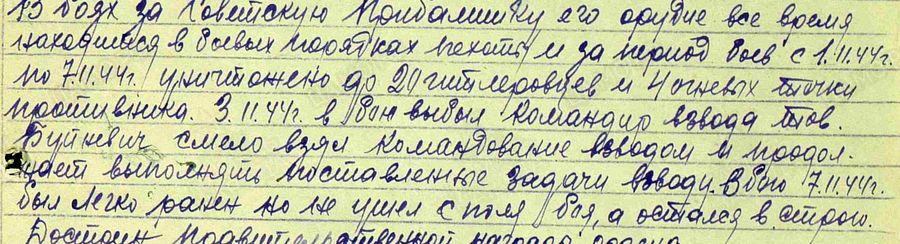 В боях за Советскую Прибалтику его орудие все время
находилась в боевых порядках пехоты и за период боев с 1.11.44г.
по 7.11.44г. уничтожено до 20 гитлеровцев и 4 огневых точки
противника. 3.11.44г. в бою выбыл командир взвода тов.
Буйневич смело взял командование взводом и продол-
жает выполнять поставленные задачи взводу. В бою 7.11.44г.
был легко ранен но не ушел с поля боя, а остался в строю.
Достоин правительственной награды